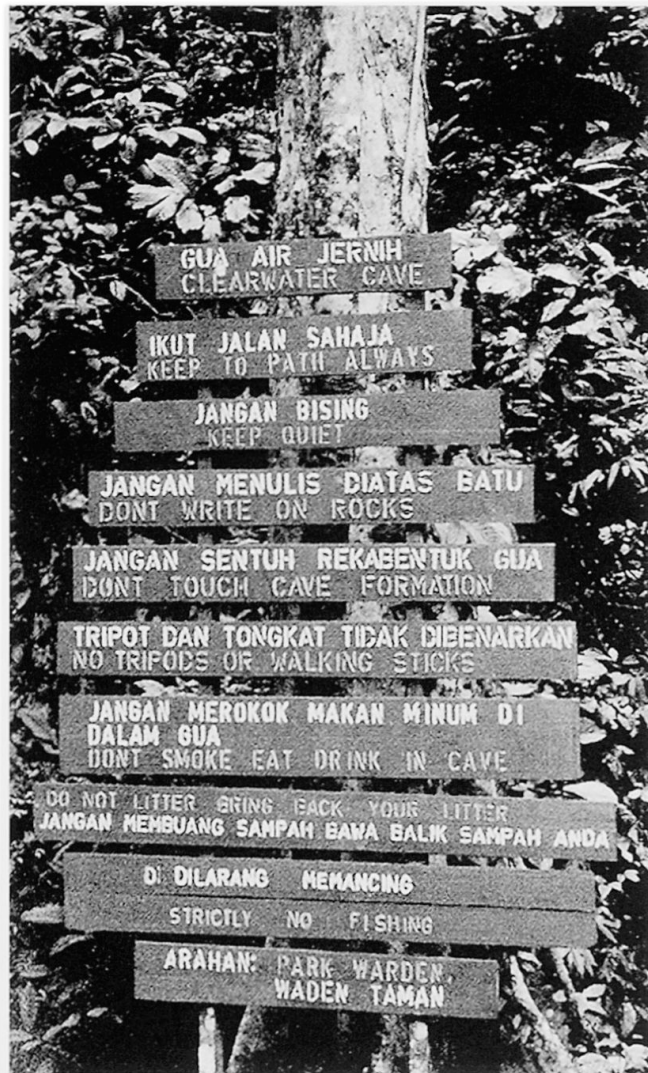 GUA AIR JERNIH
CLEARWATER CAVE
IKUT JALAN SAHAJA
KEEP TO PATH ALWAYS
JANGAN BISING
KEEP QUIET
JANGAN MENULIS DIATAS BATU
DONT WRITE ON ROCKS
JANGAN SENTUH REKABENTUK GUA
DONT TOUCH CAVE FORMATION
TRIPOT DAN TONGKAT TIDAK DIBENARKAN
NO TRIPODS OR WALKING STICKS
JANGAN MEROKOK MAKAN MINUM DI
DALAM GUA
DONT SMOKE EAT DRINK IN CAVE
DO NOT LITTER BRING BACK YOUR LITTER
JANGAN MEMBUANG SAMPAH BAWA BALIK SAMPAH ANDA
DI DILARANG MEMANCING
STRICTLY NO FISHING
ARAHAN: PARK WARDEN.
WADEN TAMAN